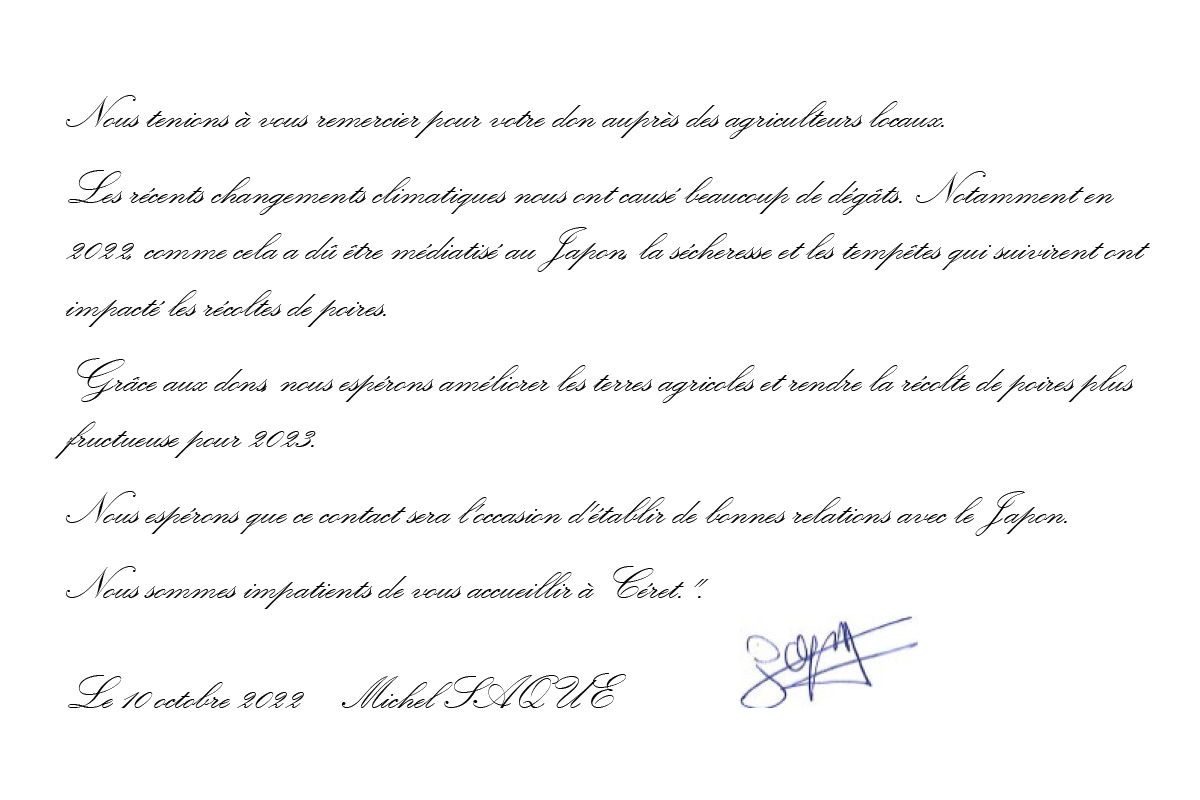 Nous tenions à vous remercier pour votre don auprès des agriculteurs locaux.
Les récents changements climatiques nous ont causé beaucoup de dégâts. Notamment en
2022, comme cela a dû être médiatisé au Japon, la sécheresse et les tempêtes qui suivirent ont
impacté les récoltes de poires.
Grâce aux dons, nous espérons améliorer les terres agricoles et rendre la récolte de poires plus
fructueuse pour 2023.
Nous espérons que ce contact sera l'occasion d'établir de bonnes relations avec le Japon.
Nous sommes impatients de vous accueillir à Céret.".
Le 10 octobre 2022 Michel SAQUE